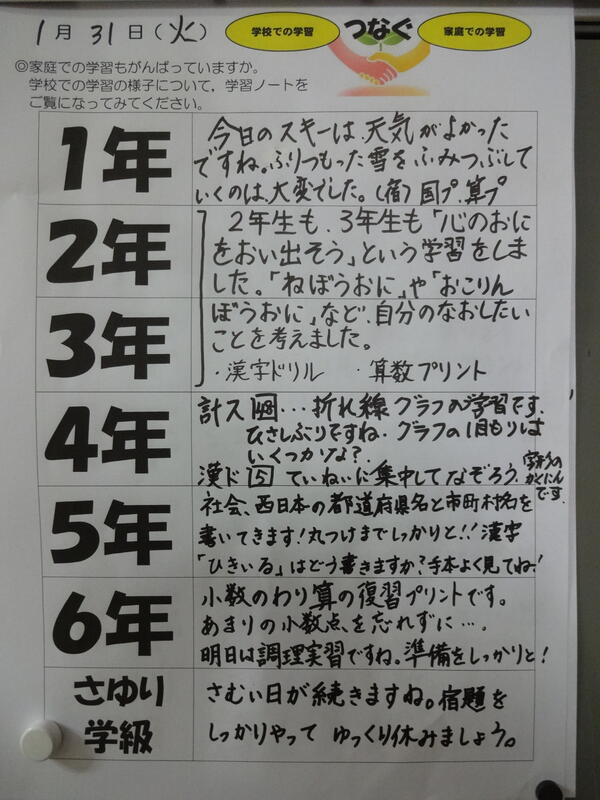 1月 31日(火)
学校での学習
つなぐ
家庭での学習
◎家庭での学習もがんばっていますか。
学校での学習の様子について,学習ノートを
ご覧になってみてください。
1年
今日のスキーは、天気がよかった
ですね。ふりつもった雪をふみつぶして
いくのは、大変でした。(宿)国プ.算プ
2年
2年生も、3年生も「心のおに
をおい出そう」という学習をしま
した。「ねぼうおに」や「おこりん
3年
ぼうおに」など、自分のなおしたい
ことを考えました。
・漢字ドリル ・算数プリント
4年
計ス 48 … 折れ線グラフの学習です.
ひさしぶりですね.グラフの1目もりは
いくつかな?
漢ド 5 ていねいに集中してなぞろう.
かくにん
です.
5年
社会、西日本の都道府県名と市町村名を
書いてきます!丸つけまでしっかりと!!漢字
「ひきいる」はどう書きますか?手本よく見てね!
6年
小数のわり算の復習プリントです。
あまりの小数点を忘れずに…。
明日は調理実習ですね。準備をしっかりと!
さゆり
学級
さむい日が続きますね。宿題を
しっかりやって ゆっくり休みましょう。